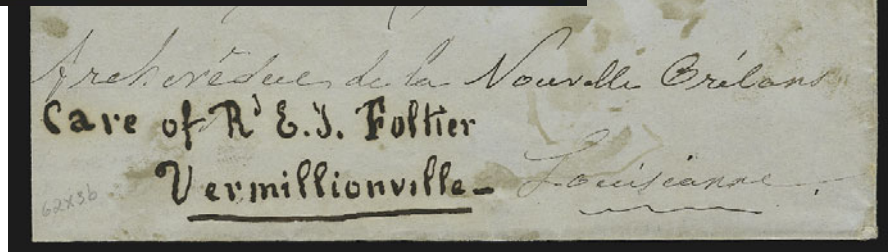 Archevêque de la Nouvelle Oréleans
Care of Rd E. J. Foltier
Vermillionville Louisianne.
62X36